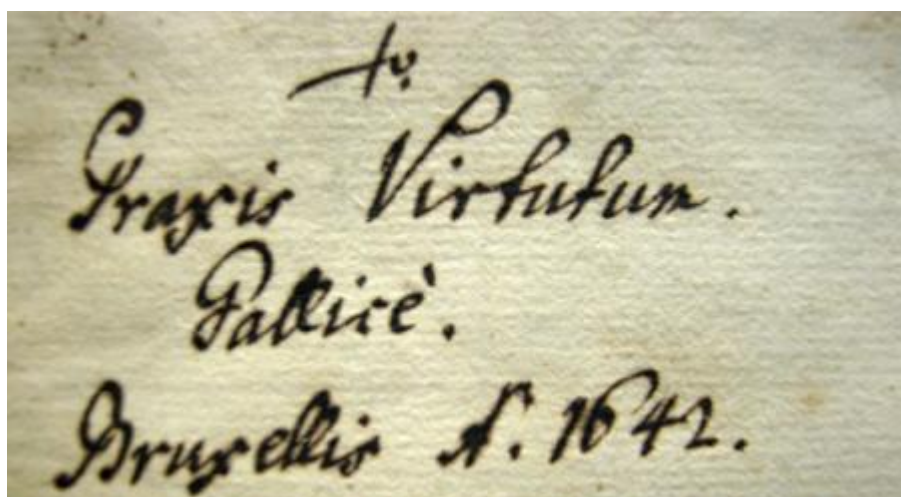 Praxis Virtutum.
Gallicè.
Bruxellis A. 1642.